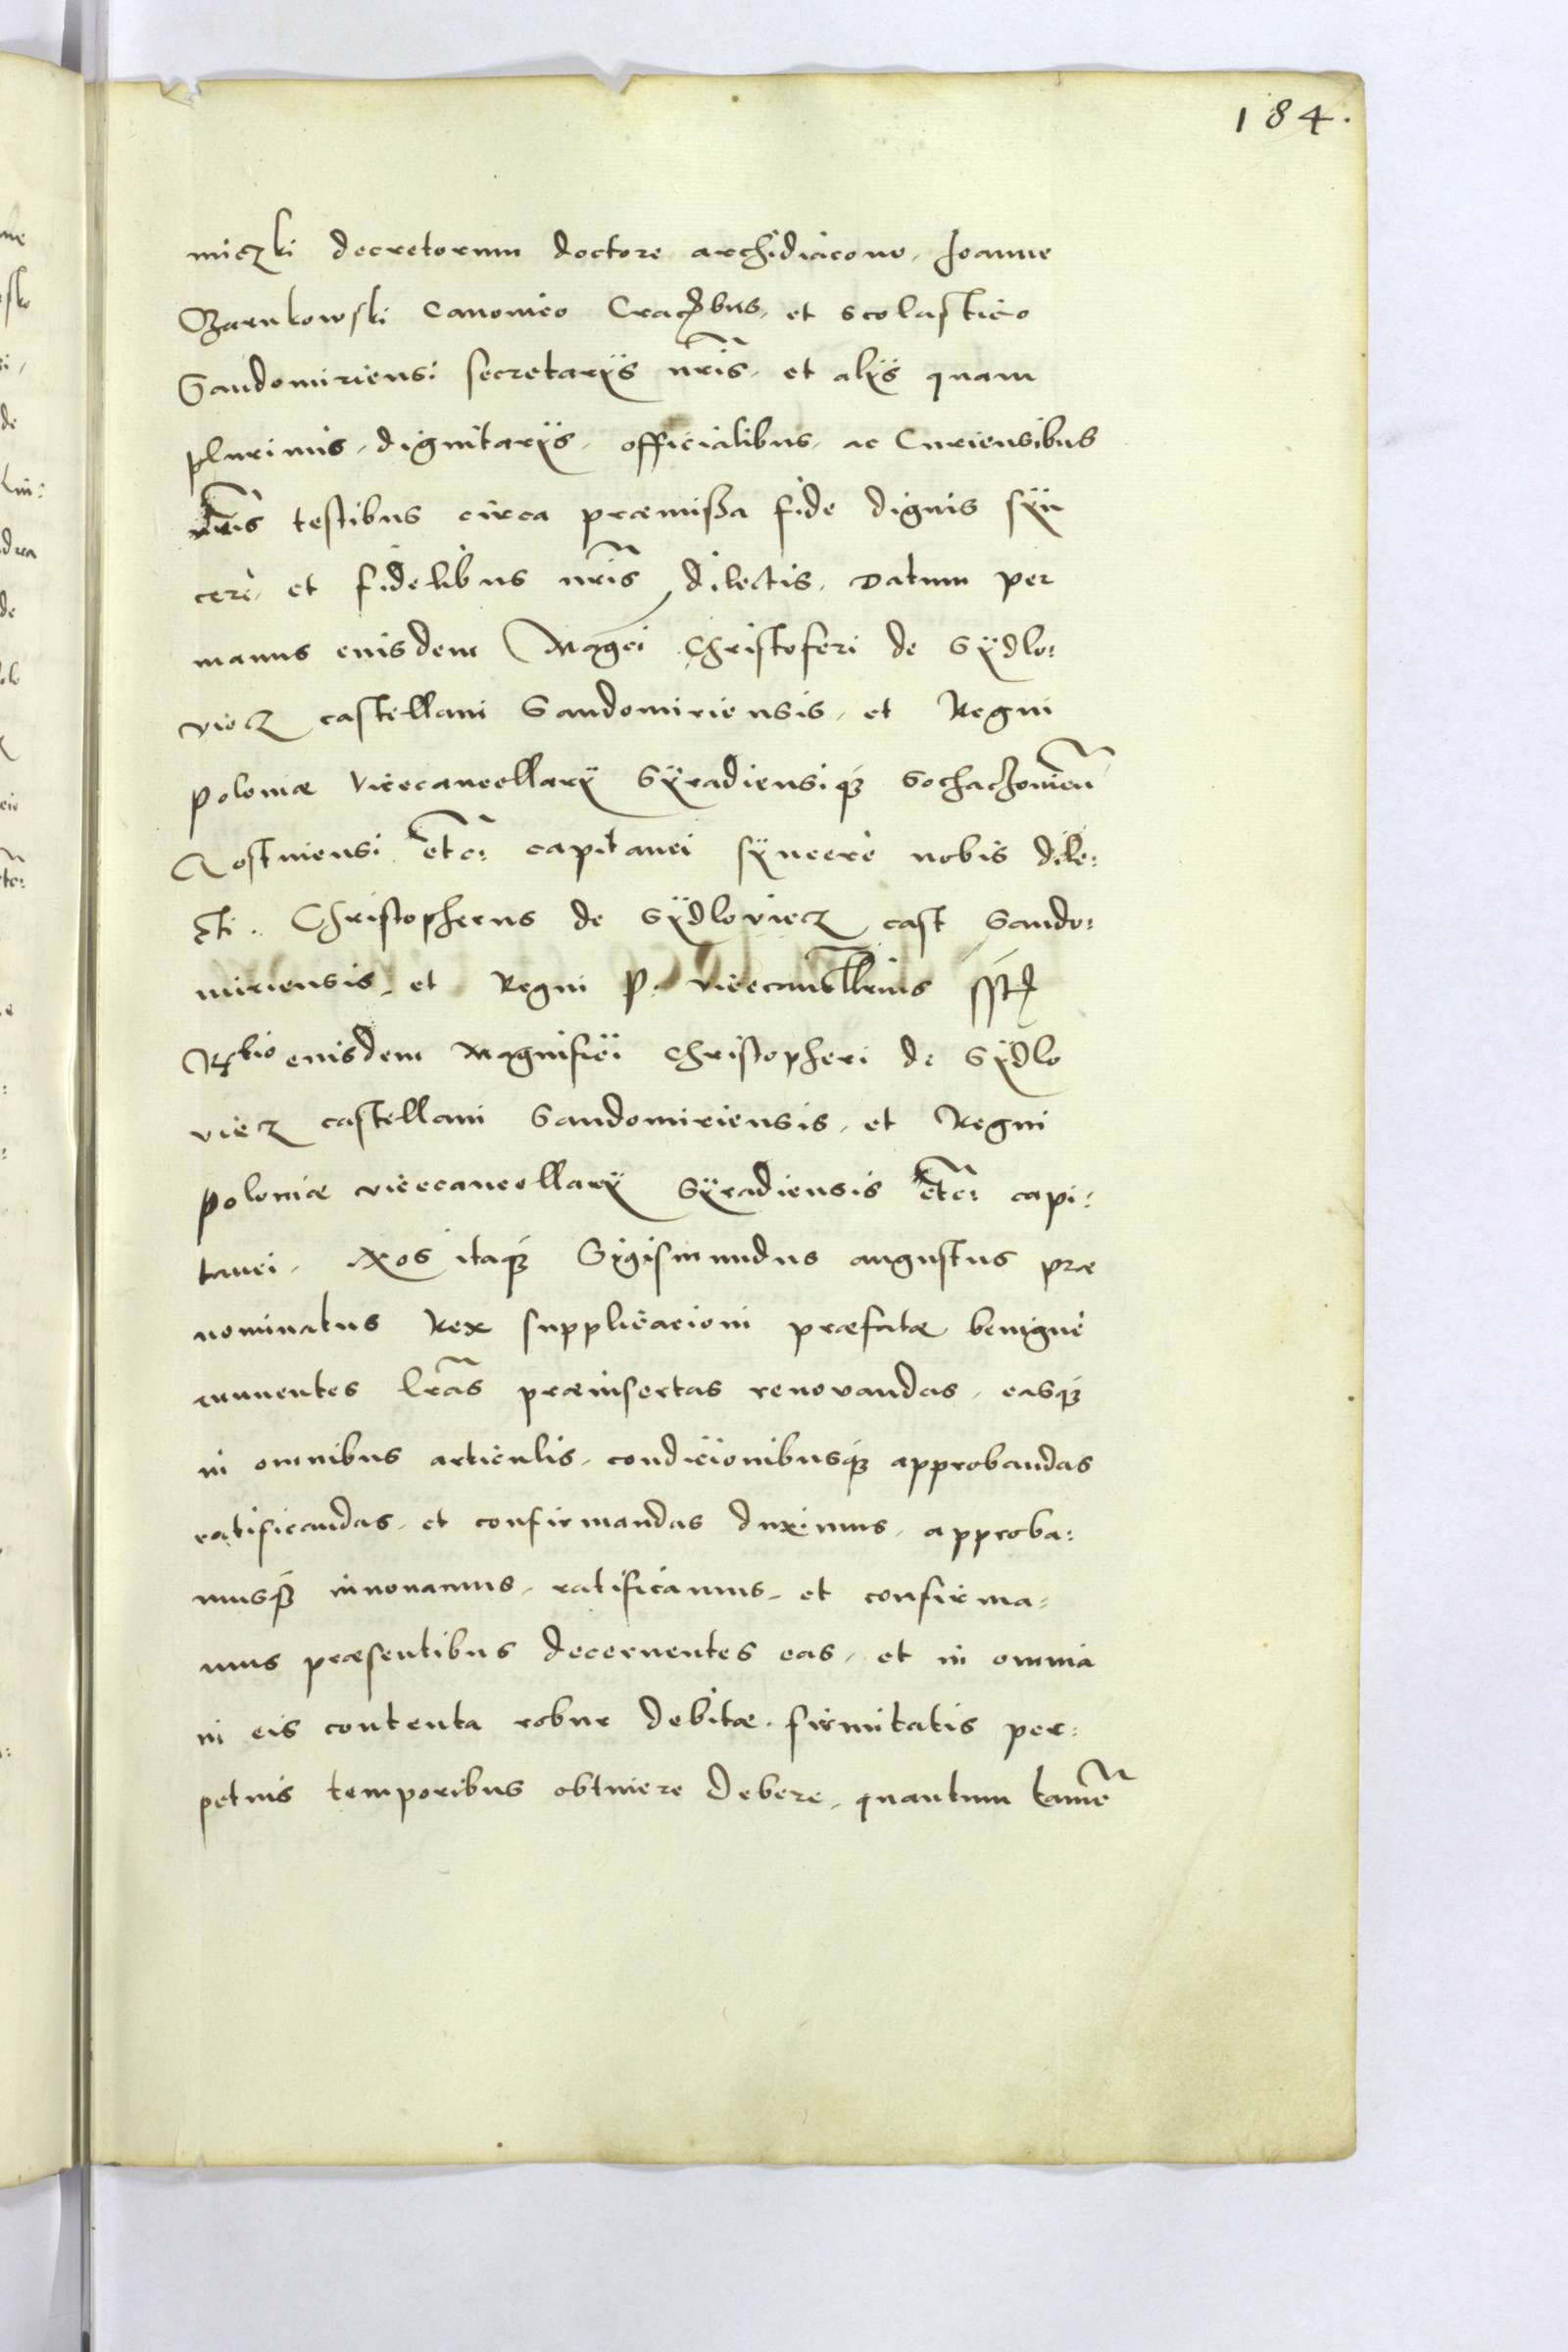 184.
miczki decretorum doctore archidiacono, Joanne
Czarnkowski Canonico Cracbus, et scolastico
Sandomiriensi secretarÿs nr̃is, et alÿs quam
plurimis, dignitarÿs, officialibus, ac Curiensibus
nr̃is testibus circa præmissa fide dignis sÿn
cerè, et fidelibus nr̃is dilectis. Datum per
manus euisdem Magci Christoferi de Sÿdlo:
viecz castellani Sandomiriensis, et Regni
Poloniæ Vicecancellarÿ Sÿradiensiq́; Sochaczouien̄
Gostinensi etc̃: capitanei sÿncerè nobis dile:
cti. Christopherus de Sÿdloviecz cast Sando:
miriensis, et Regni P. vicecancellrius sst
Rlio euisdem Magnifici Christopheri de Sÿdlo
viecz castellani Sandomiriensis, et Regni
Poloniæ vicecancellarÿ Sÿradiensis etc̃: capi:
tanei. Nos itaq́; Sigismundus augustus præ
nominatus Rex supplicacioni præfatæ benignè
annuentes lr̃as præinsertas renovandas, easq́;
in omnibus articulis, condicionibusq́; approbandas
ratificandas, et confirmandas duximus, approba:
musq́; innouamus, ratificamus, et confirma:
mus præsentibus decernentes eas, et in omnia
in eis contenta robur debitæ firmitatis per:
petuis temporibus obtinere debere, quantum tamẽ